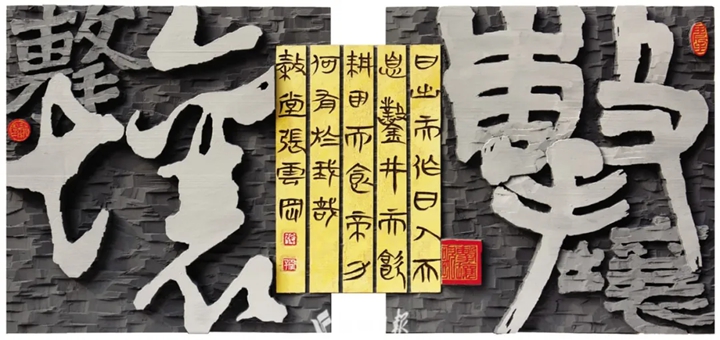 擊
壤
日出而作日入而
息鑿井而飲
耕田而食帝力
何有於我哉
堂張雲岡
壤
擊
报